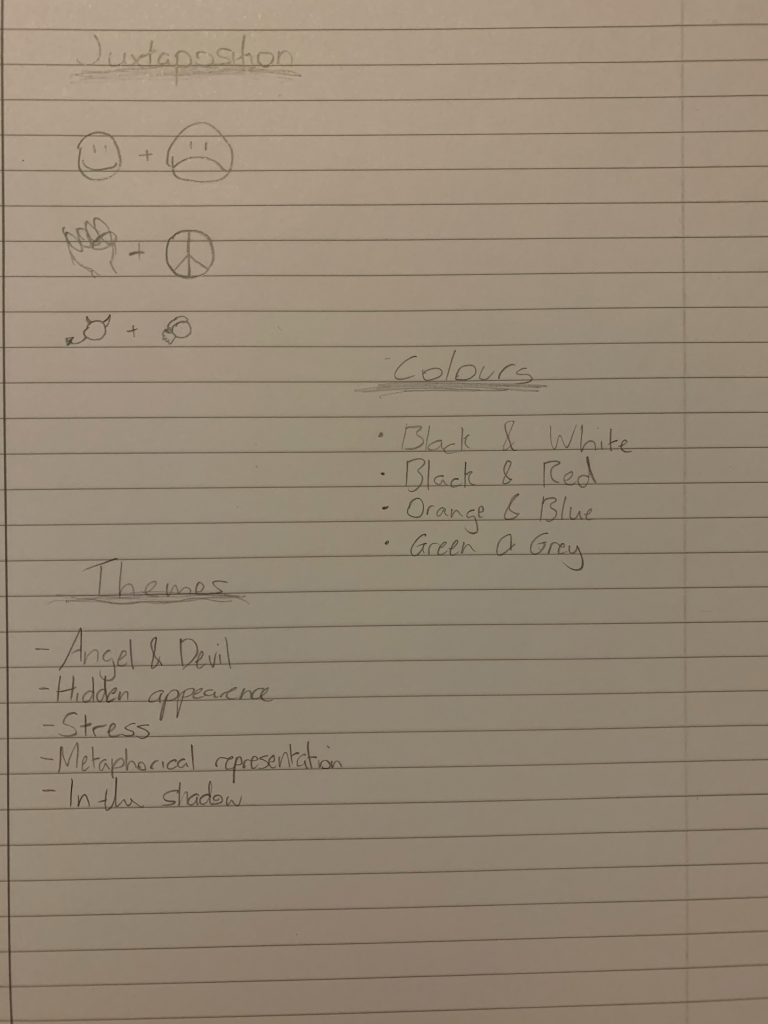 Juxtaposition
+
+
+
Colours
• Black & White
• Black & Red
• Orange & Blue
• Green & Grey
Themes
- Angel & Devil
- Hidden appearence
- Stress
- Metaphorical representation
- In the shadow